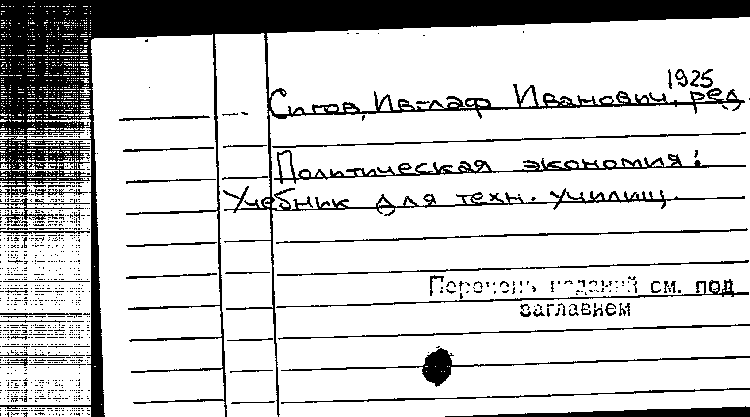 1925
Сигов, Ивглаф Иванович, ред.
Политическая экономия:
Учебник для техн. училищ.
Перечень изданий см. под
заглавием